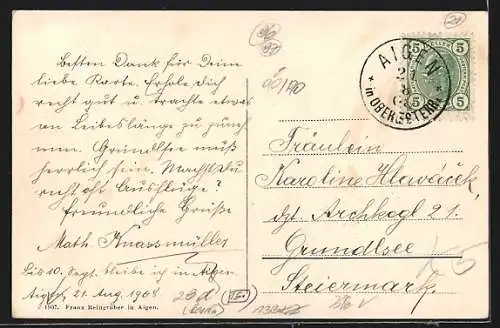 Besten Dank für Deine
liebe Karte. Erhole Dich
recht gut u. trachte etwas
an Leibeslänge zu zuneh-
men. Grundlsee muß
herrlich sein. Machst Du
recht oft Ausflüge?
Freundliche Grüße
Math. Knassmüller
Bis 10. Sept. bleibe ich in Aigen.
Aigen, 21. Aug. 1908
1907. Franz Reingruber in Aigen.
AIGEN
in OBERÖSTERR.
5 5
5 5
Fräulein
Karoline Hlaváček,
dzt. Archkogl 21.
Grundlsee
Steiermark